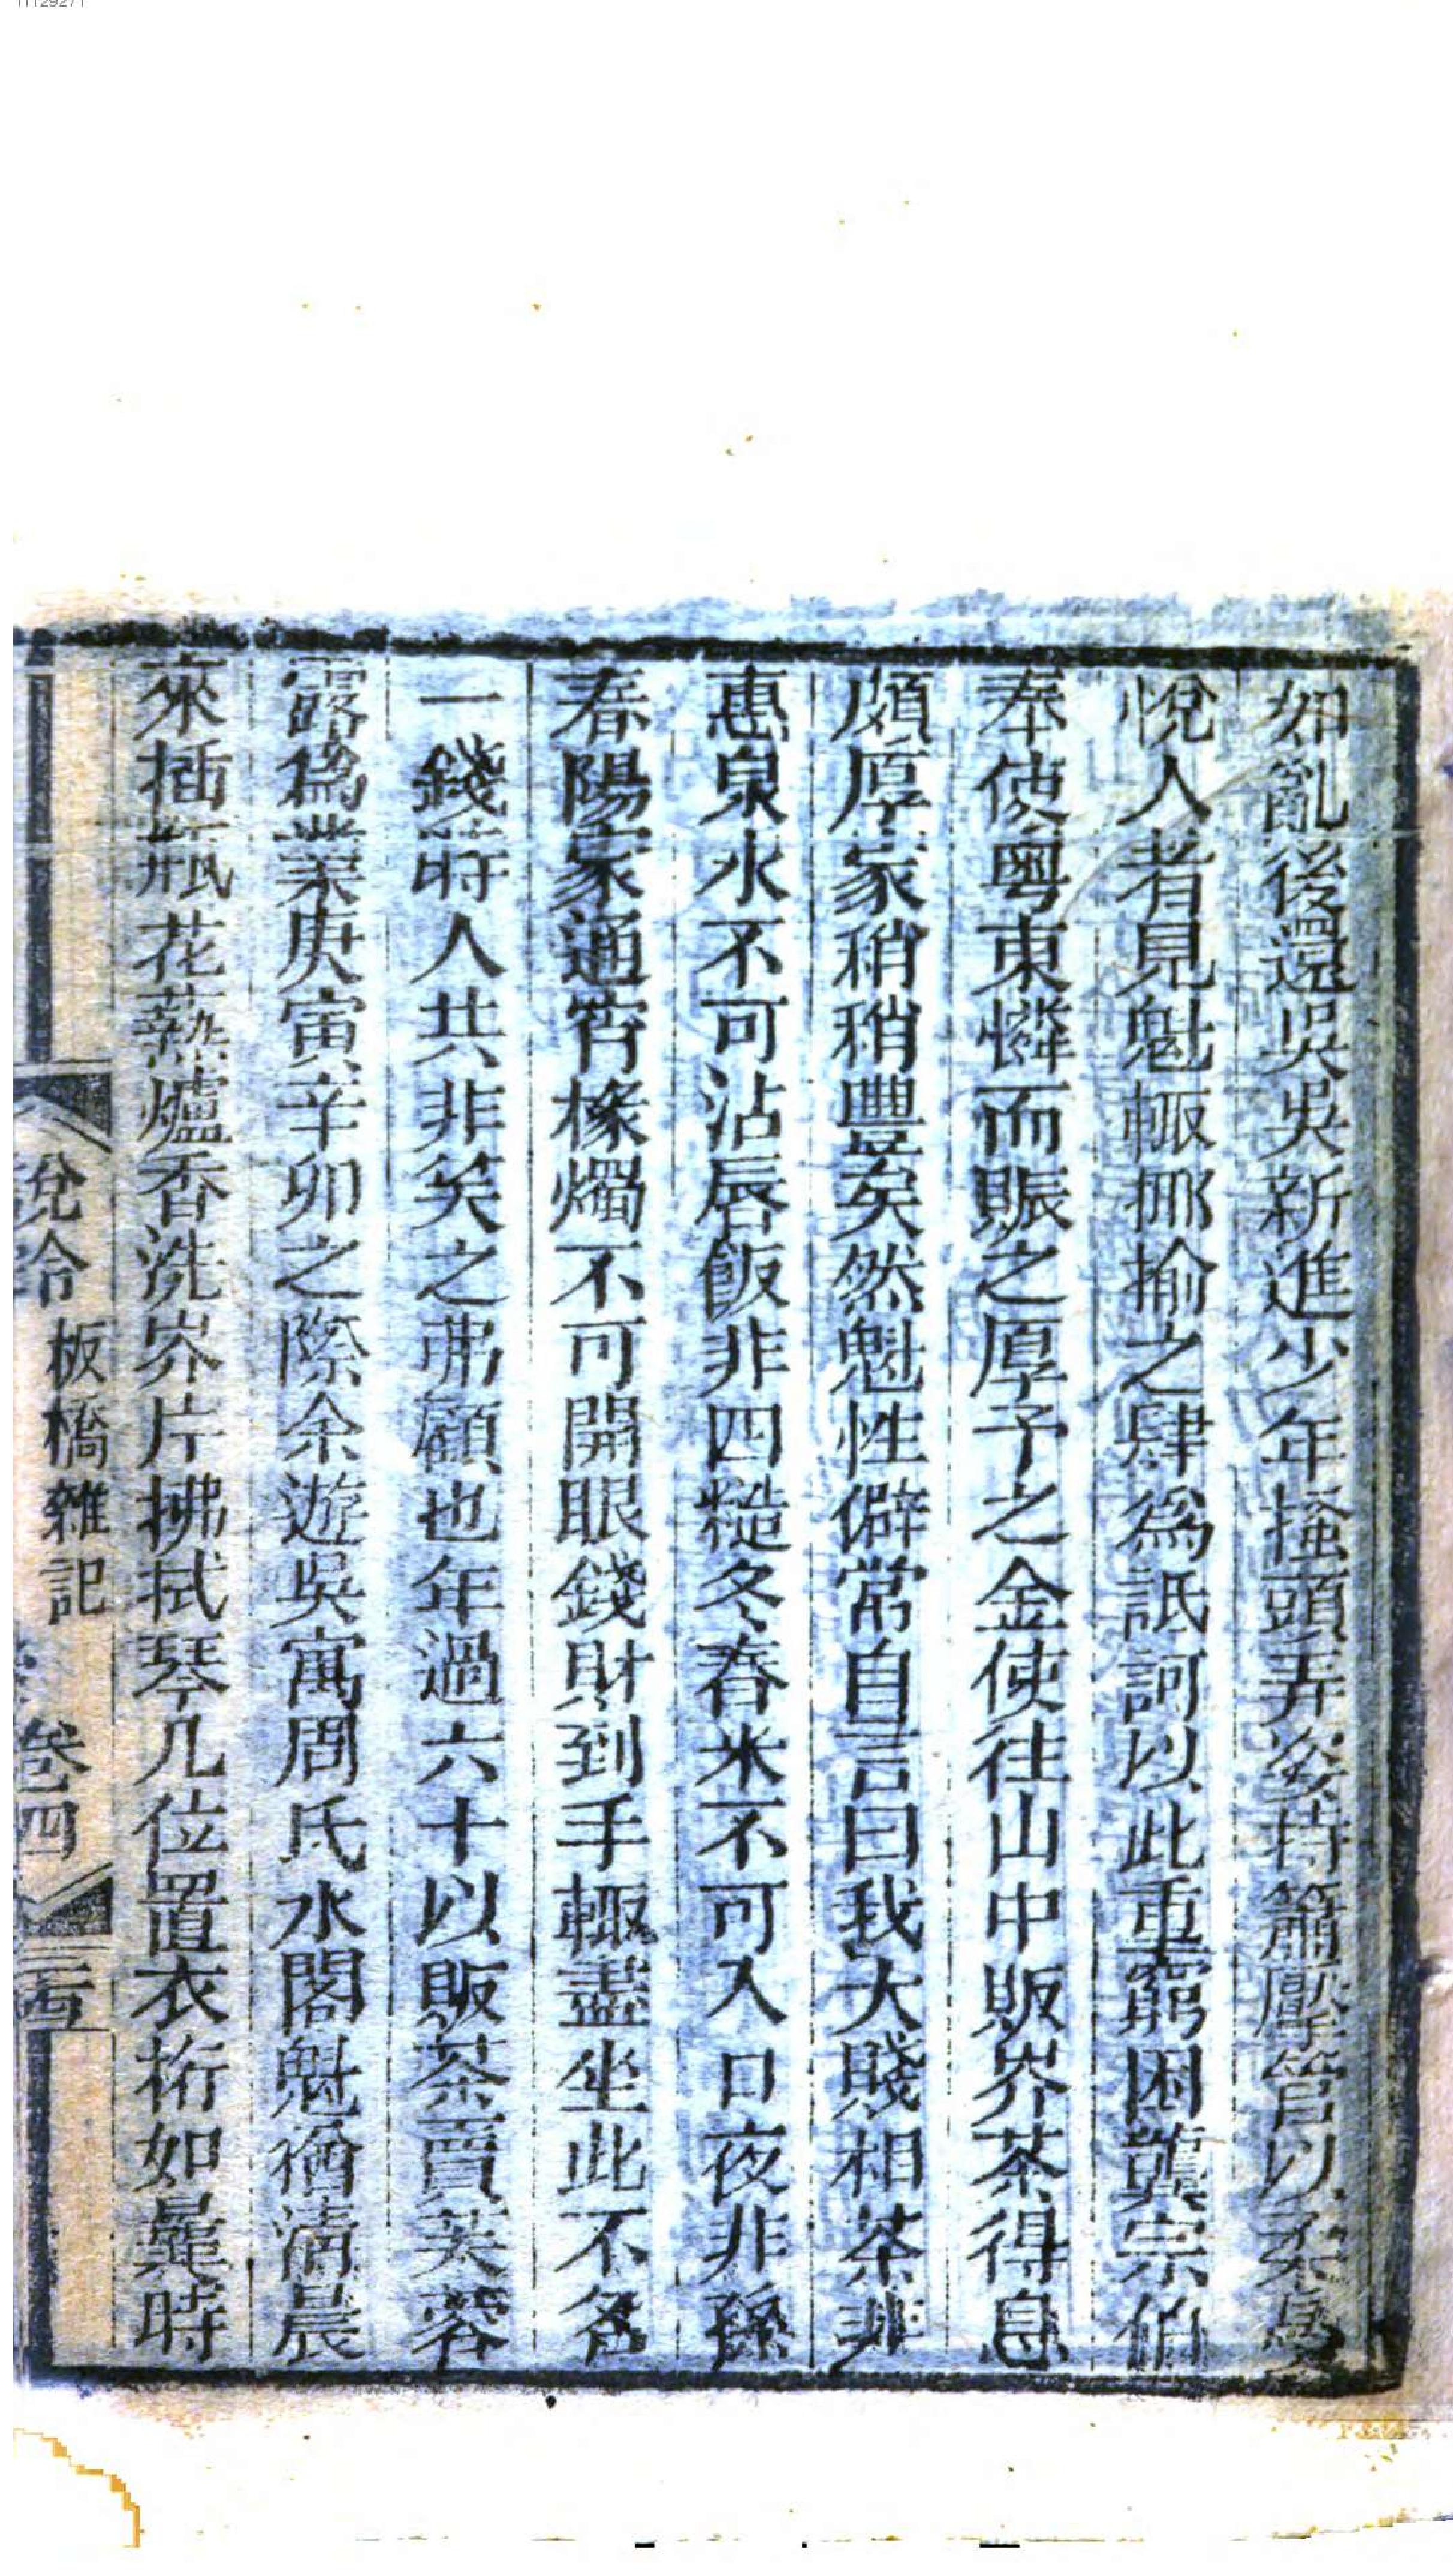 如亂後還吳吳新進少年搔頭弄姿持簫擪管以柔曼
悅人者見魁輒揶揄之肆爲詆訶以此重窮困龔宗伯
奉使粵東憐而賑之厚予之金使往山中販岕茶得息
頗厚家稍稍豐矣然魁性僻常自言曰我大賤相茶非
惠泉水不可沾唇飯非四糙冬舂米不可入口夜非孫
春陽家通宵椽燭不可開眼錢財到手輒盡坐此不名
一錢時人共非笑之弗顧也年過六十以販茶賣芙蓉
露爲業庚寅辛卯之際余遊吳寓周氏水閣魁猶清晨
來插瓶花爇爐香洗岕片拂拭琴几位置衣桁如曩時
說鈴 板橋雜記 卷四